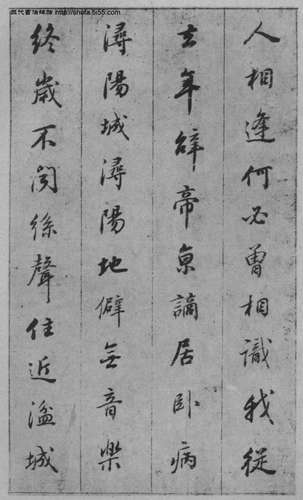 人相逢何必曾相識我從
去年辭帝京謫居臥病
潯陽城潯陽地僻無音樂
終歲不聞絲聲住近湓城